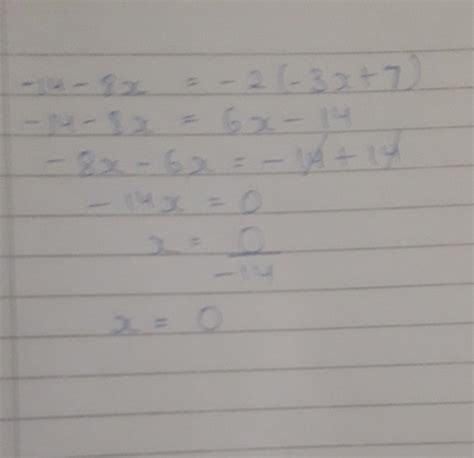 -14-8x = -2(-3x+7)
-14-8x = 6x-14
-8x-6x = -14+14
-14x = 0
x = 0
-14
x = 0